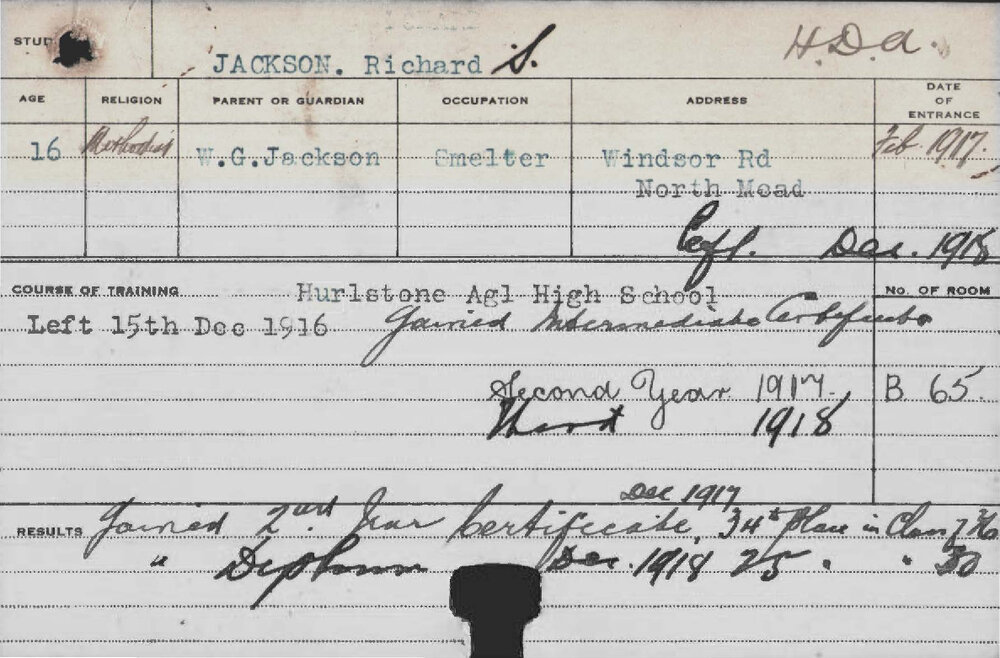 STUD
JACKSON. Richard S. H.D.A.
AGE RELIGION PARENT OR GUARDIAN OCCUPATION ADDRESS DATE OF ENTRANCE
16 Methodist W.G.Jackson Smelter Windsor Rd Feb. 1917.
North Mead
Left. Dec. 1918
COURSE OF TRAINING Hurlstone Agl High School No. OF ROOM
Left 15th Dec 1916 Gained Intermediate Certificate
Second Year 1917. B 65.
Third 1918
Dec 1917
RESULTS Gained 2nd Year Certificate, 34th Place in Class
" Diploma Dec. 1918 25 " " 30